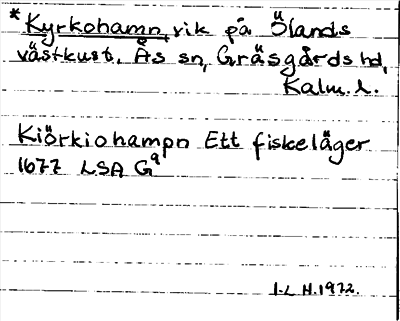 *Kyrkohamn, vik på Ölands
västkust. Ås sn, Gräsgårds hd,
Kalm. l.
Kiörkiohampn Ett fiskeläger
1677 LSA G9
I-L H.1972.